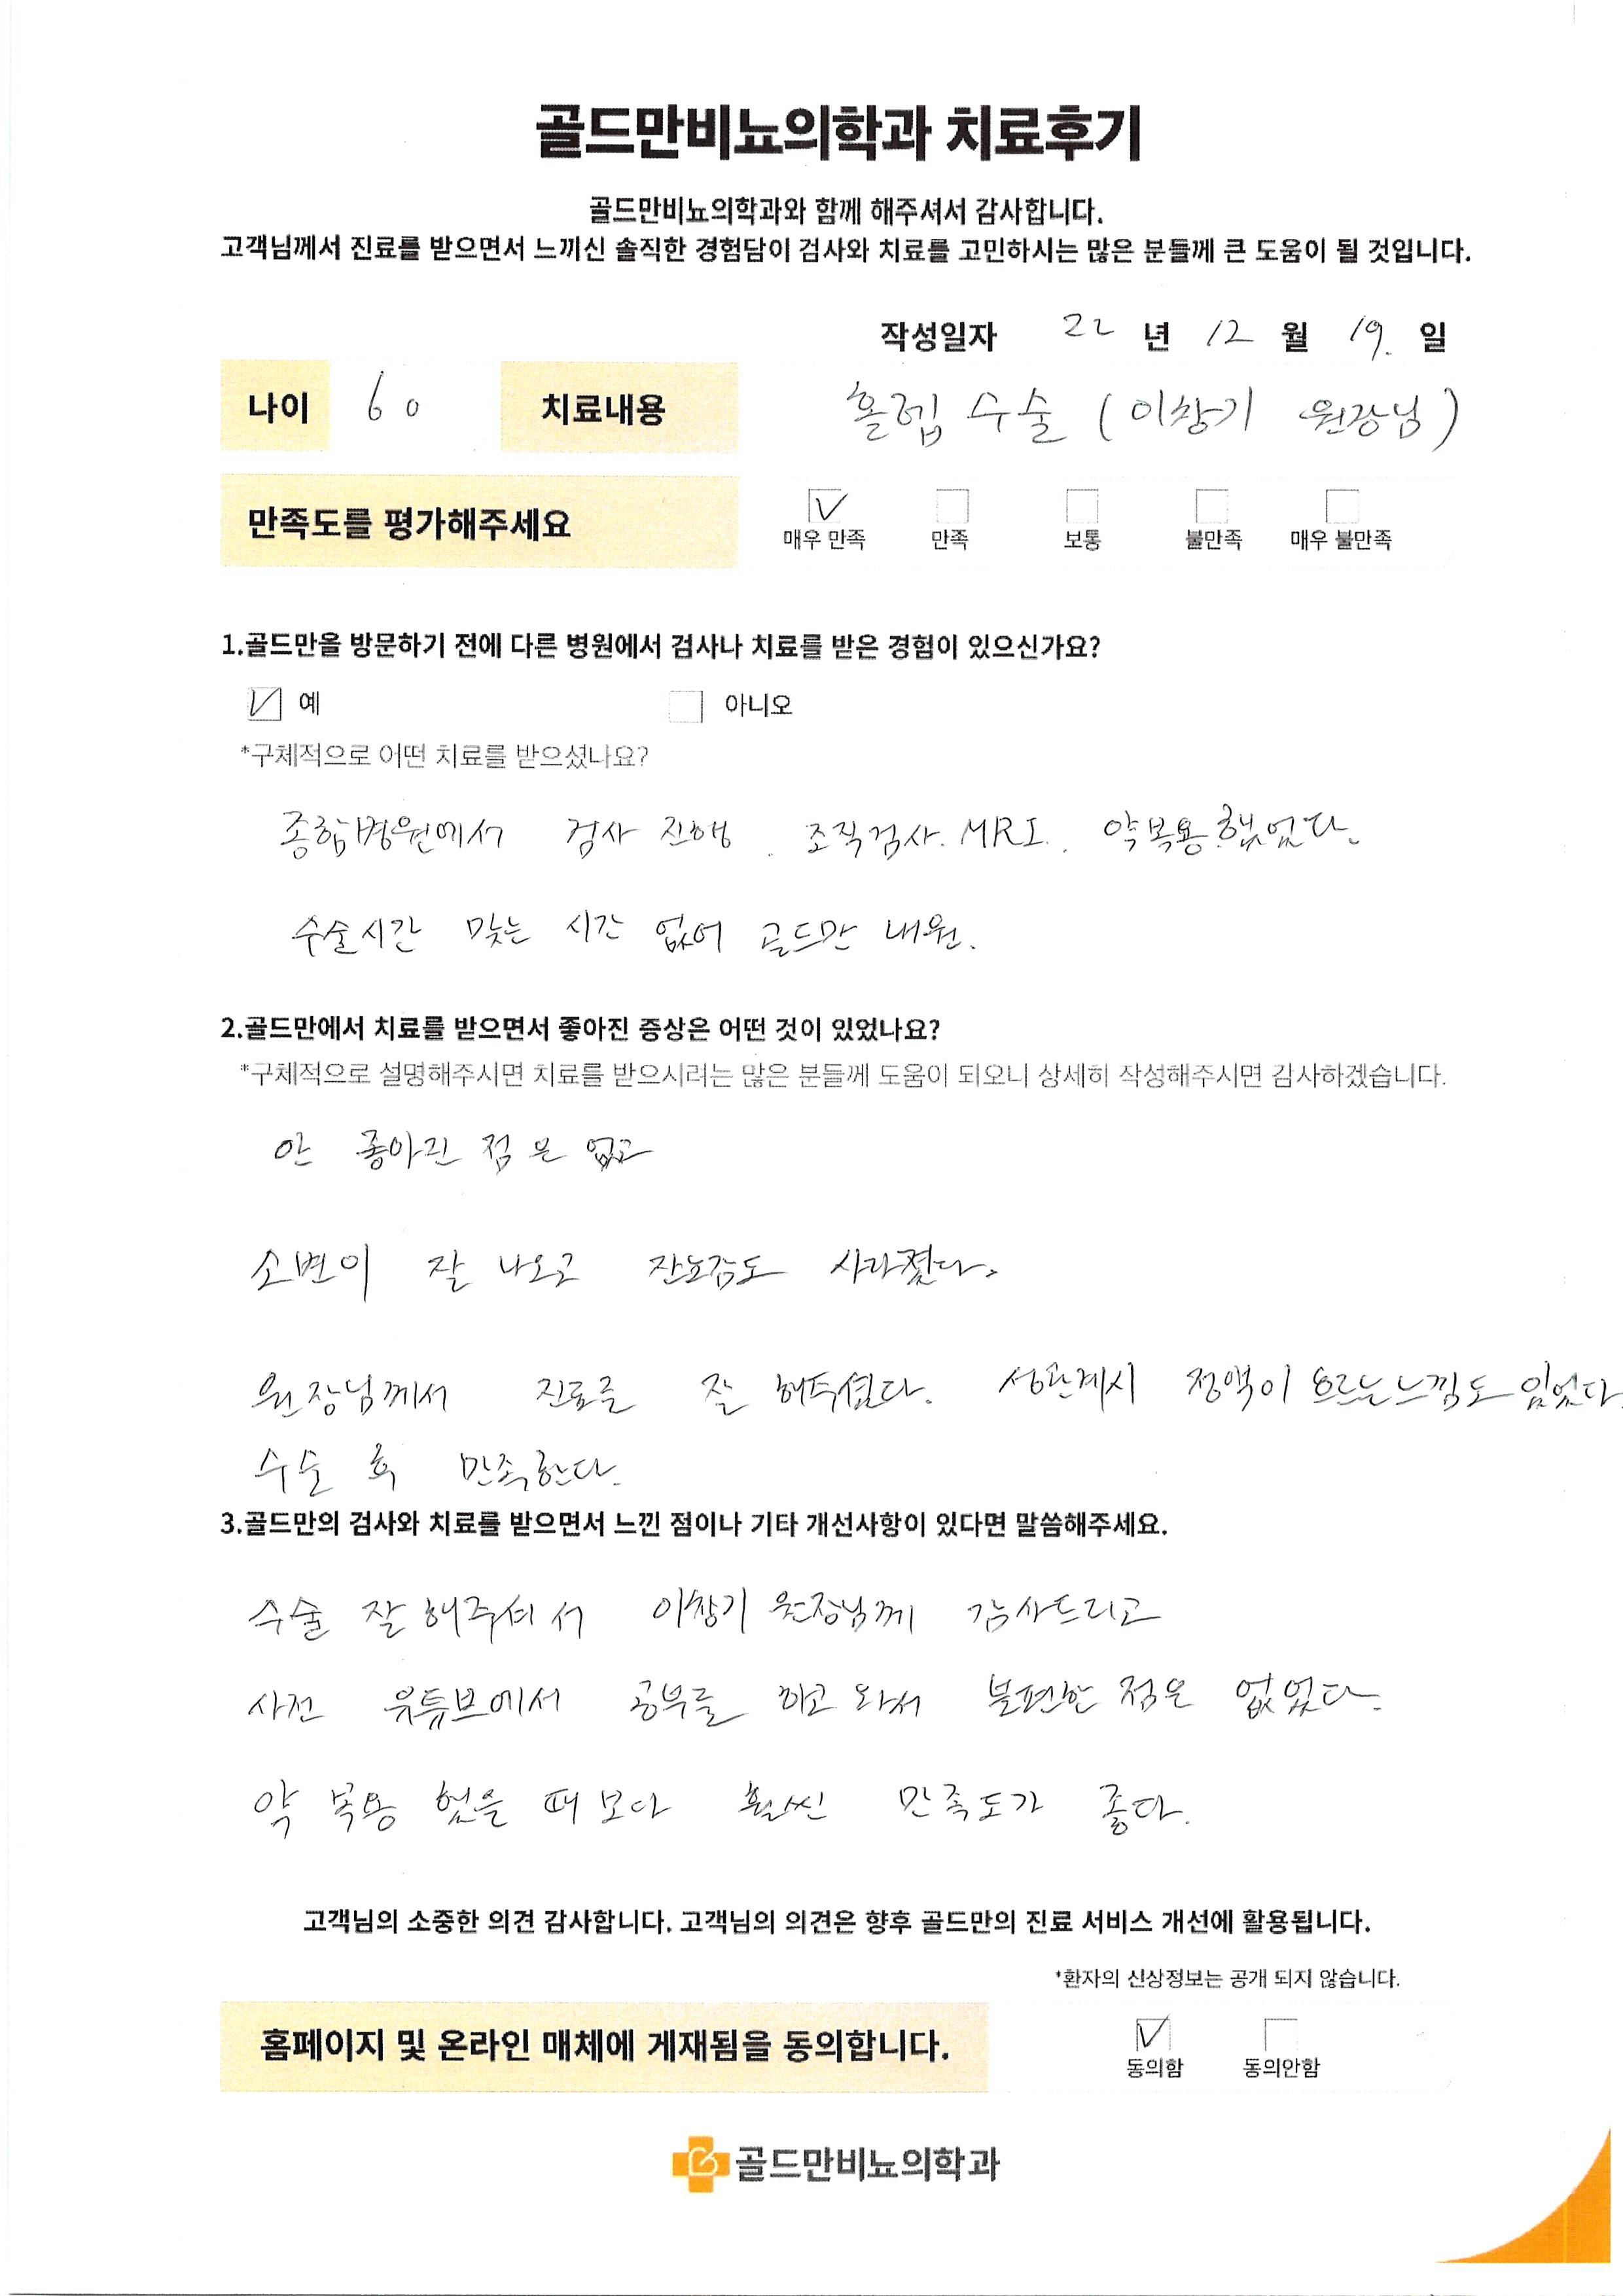 골드만비뇨의학과 치료후기
골드만비뇨의학과와 함께 해주셔서 감사합니다.
고객님께서 진료를 받으면서 느끼신 솔직한 경험담이 검사와 치료를 고민하시는 많은 분들께 큰 도움이 될 것입니다.
작성일자 22 년 12 월 19. 일
나이 60 치료내용 홀렙 수술 (이창기 원장님)
만족도를 평가해주세요
매우 만족 만족 보통 불만족 매우 불만족
1.골드만을 방문하기 전에 다른 병원에서 검사나 치료를 받은 경험이 있으신가요?
예 아니오
*구체적으로 어떤 치료를 받으셨나요?
종합병원에서 검사 진행. 조직검사. MRI. 약복용.했었다.
수술시간 맞는 시간 없어 골드만 내원.
2.골드만에서 치료를 받으면서 좋아진 증상은 어떤 것이 있었나요?
*구체적으로 설명해주시면 치료를 받으시려는 많은 분들께 도움이 되오니 상세히 작성해주시면 감사하겠습니다.
안 좋아진 점은 없고
소변이 잘 나오고 잔뇨감도 사라졌다.
원장님께서 진료를 잘 해주셨다. 성관계시 정액이 흐르는느낌도 있었다
수술 후 만족한다.
3.골드만의 검사와 치료를 받으면서 느낀 점이나 기타 개선사항이 있다면 말씀해주세요.
수술 잘 해주셔서 이창기 원장님께 감사드리고
사전 유튜브에서 공부를 하고 와서 불편한 점은 없었다.
약 복용 했을 때 보다 훨씬 만족도가 좋다.
고객님의 소중한 의견 감사합니다. 고객님의 의견은 향후 골드만의 진료 서비스 개선에 활용됩니다.
*환자의 신상정보는 공개 되지 않습니다.
홈페이지 및 온라인 매체에 게재됨을 동의합니다.
동의함 동의안함
골드만비뇨의학과